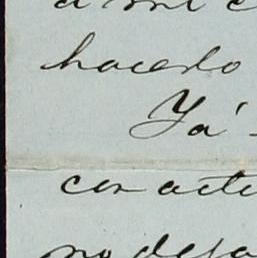 a mi c
hacerlo
Ya -
con acti
no deja